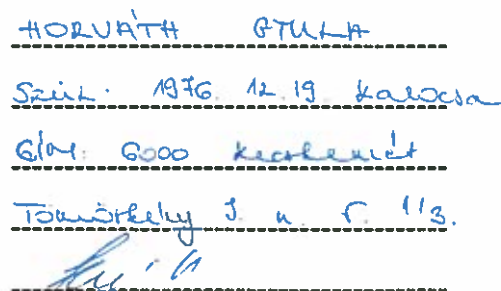 HORVÁTH GYULA
Szül. 1976. 12. 19 Kalocsa
6000 Kecskemét
Tömörkény I. u. 5. 1/3.